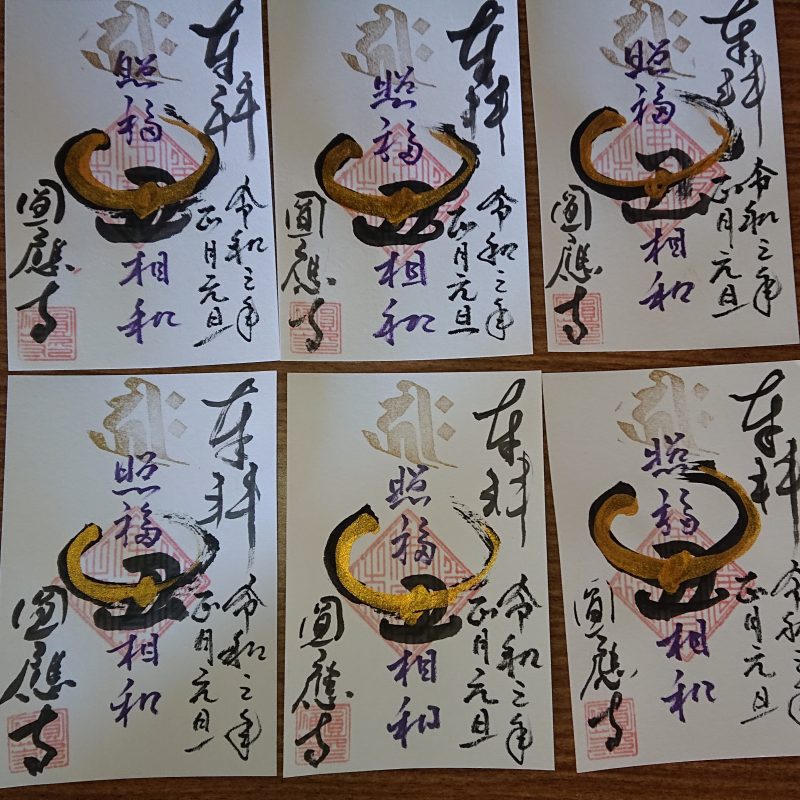 奉拝
令和三年
正月元旦
照福
丑
相和
圓應寺
奉拝
令和三年
正月元旦
照福
丑
相和
圓應寺
奉拝
令和三年
正月元旦
照福
丑
相和
圓應寺
奉拝
令和三年
正月元旦
照福
丑
相和
圓應寺
奉拝
令和三年
正月元旦
照福
丑
相和
圓應寺
奉拝
令和三年
正月元旦
照福
丑
相和
圓應寺